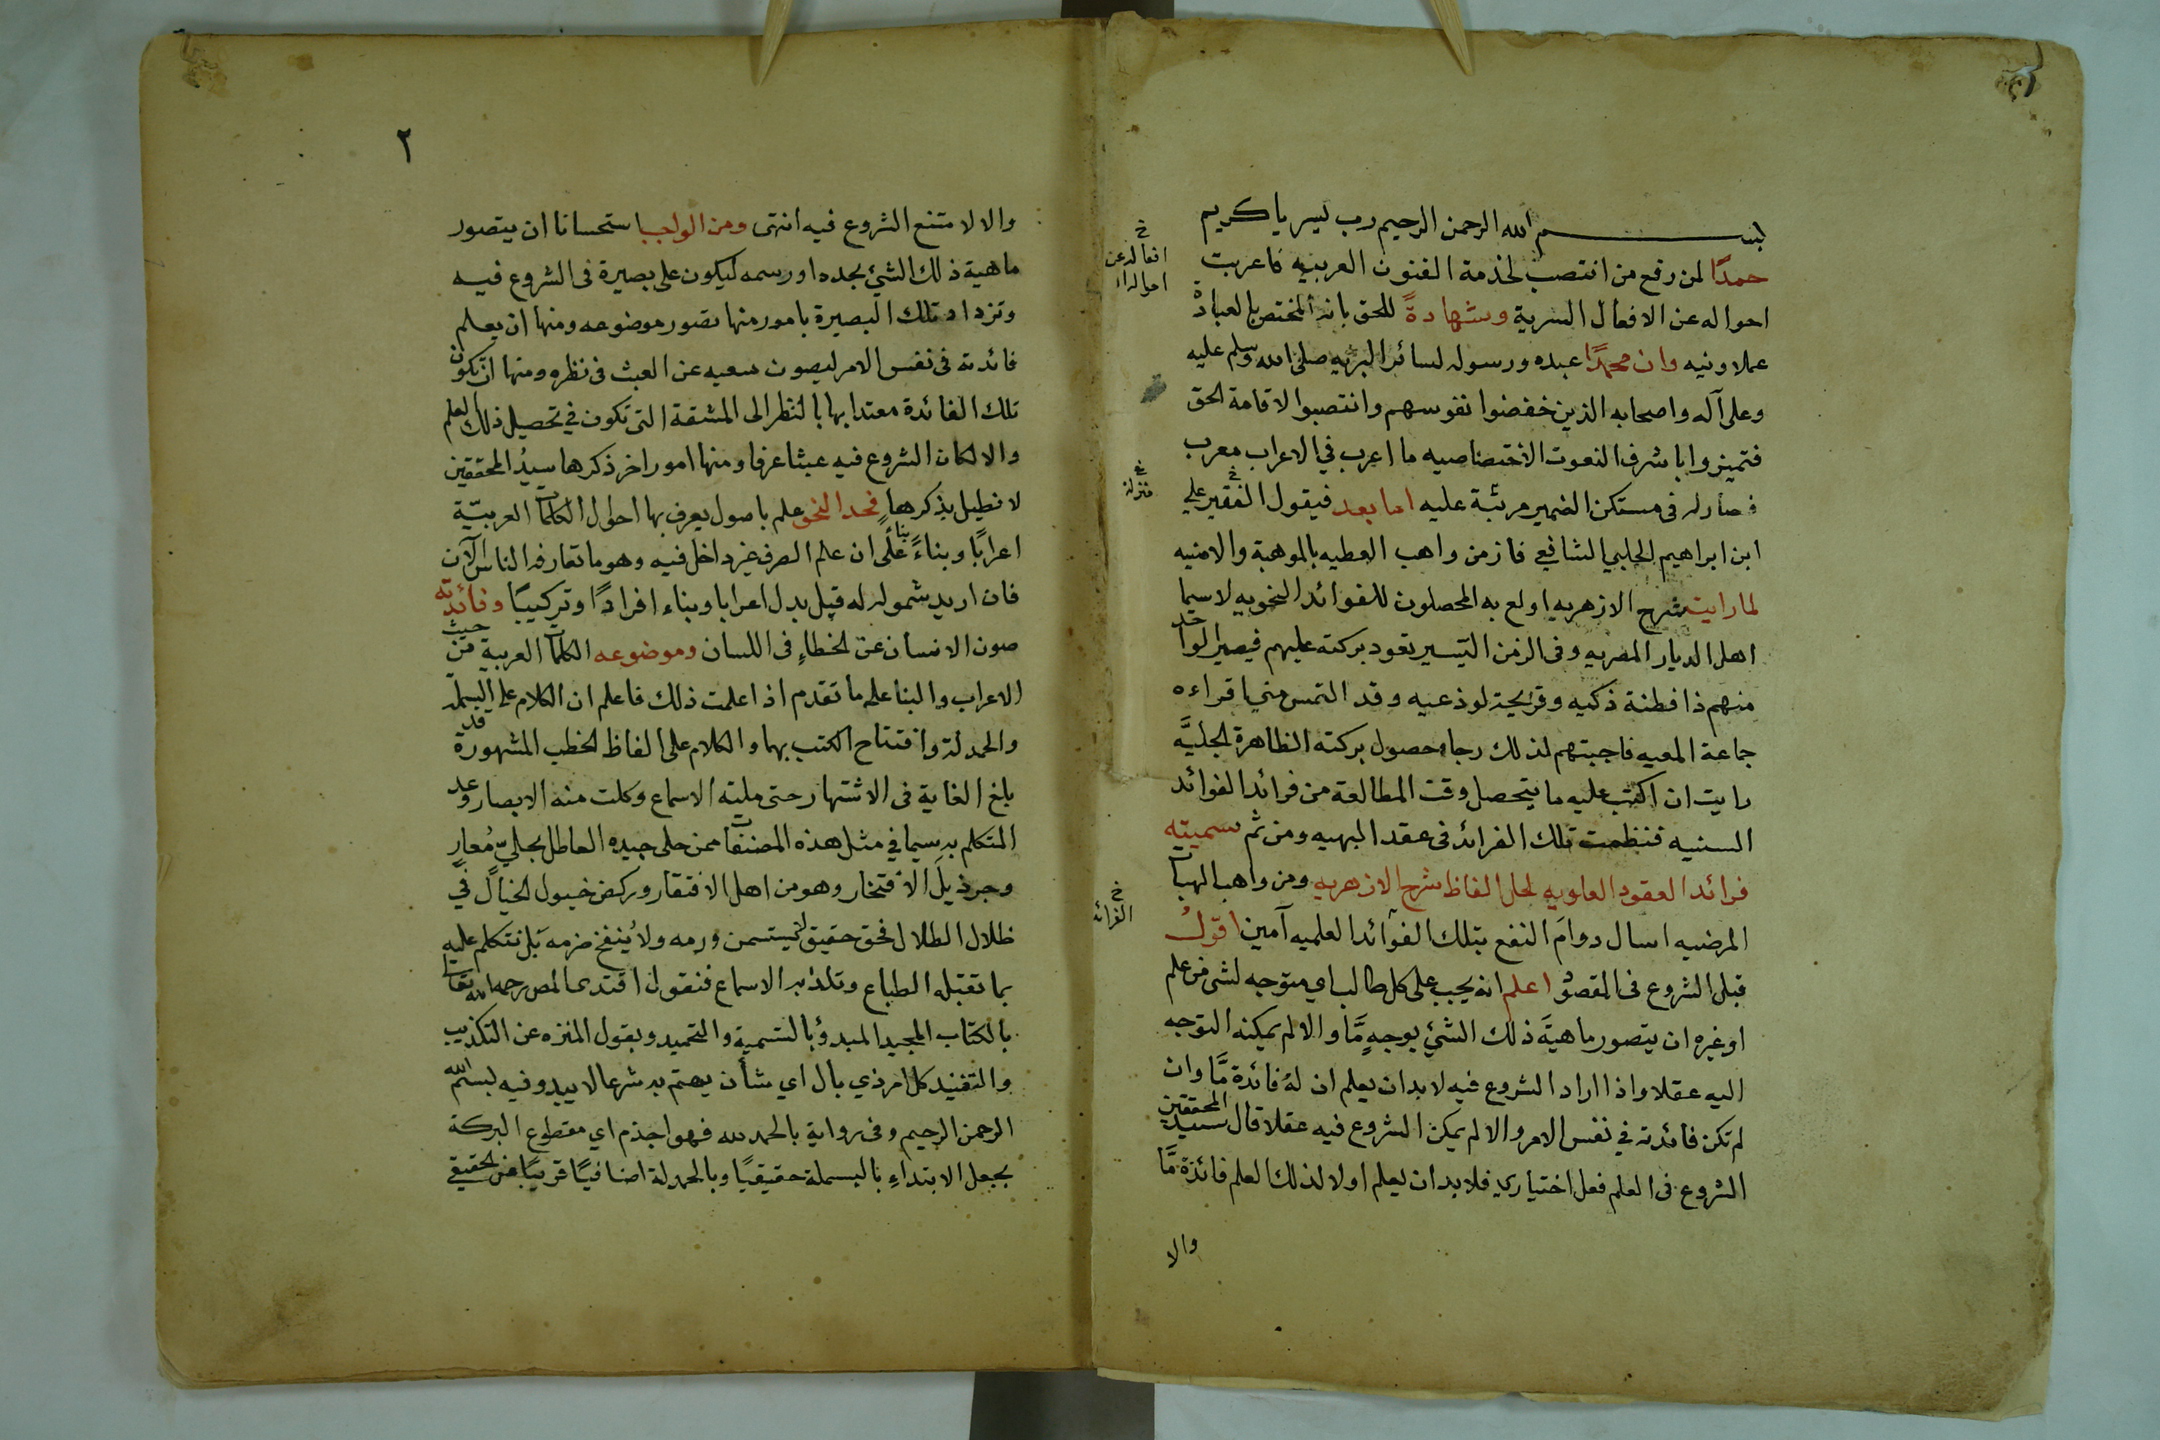 بسم الله الرحمن الرحيم رب يسر يا كريم
حمدًا لمن رفع من انتصب لخدمة الفنون العربيه فاعربت
احواله عن الافعال السريه وشهادةً للحق بانه المختص بالعبادة
عملا ونيه وان محمدًا عبده ورسوله لسائر البريه صلى الله وسلم عليه
وعلى آله واصحابه الذين خفضوا نفوسهم وانتصبوا لاقامة الحق
فتميزوا باشرف النعوت الاختصاصيه ما اعرب في الاعراب معرب
فصار له في مستكن الضمير مرتبة عليه اما بعد فيقول الفقير علي
ابن ابراهيم الحلبي الشافعي فاز من واهب العطيه بالموهبة والامنيه
لما رايت شرح الازهريه اولع به المحصلون للفوائد النحويه لاسيما
اهل الديار المصريه وفي الزمن اليسير تعود بركته عليهم فيصير الواحد
منهم ذا فطنة ذكيه وقريحة لوذعيه وقد التمس مني اقراءه
جماعة المعيه فاجبتهم لذلك رجاء حصول بركته الظاهرة الجليَّه
رايت ان اكتب عليه ما يتحصل وقت المطالعة من فرائد الفوائد
السنيه فنظمت تلك الفرائد في عقد البهيه ومن ثم سميته
فرائد العقود العلويه لحل الفاظ شرح الازهريه ومن واهب الهبات
المرضيه اسال دوامَ النفع بتلك الفوائد العلميه آمين اقولُ
قبل الشروع في المقصود اعلم انه يجب على كل طالب اي متوجه لشئ من علم
او غيره ان يتصور ماهيةَ ذلك الشئ بوجهٍ مَّا والا لم يمكنه التوجه
اليه عقلا واذا اراد الشروع فيه لابد ان يعلم ان لهُ فائدة مَّا وان
لم تكن فائدته في نفس الامر والا لم يمكن الشروع فيه عقلا قال سيد المحققين
الشروع في العلم فعل اختياري فلا بد ان يعلم اولا لذلك العلم فائدة مَّا
والا
خ
افعاله عن
احواله
خ
منزلة
خ
الفرائد
٢
والا لامتنع الشروع فيه انتهى ومن الواجب استحسانا ان يتصور
ماهية ذلك الشئ بحده او رسمه ليكون على بصيرة في الشروع فيه
وتزداد تلك البصيرة بامور منها تصور موضوعه ومنها ان يعلم
فائدته في نفس الامر ليصون سعيه عن العبث في نظره ومنها ان تكون
تلك الفائدة معتدا بها بالنظر الى المشقة التي تكون في تحصيل ذلك العلم
والا لكان الشروع فيه عبثا عرفا ومنها امور اخر ذكرها سيدُ المحققين
لا نطيل بذكرها فحد النحو علم باصول يعرف بها احوال الكلمات العربيّة
اعرابًا وبناءً بناء على ان علم الصرف غير داخل فيه وهو ما تعارفه الناس الآن
فان اريد شموله له قيل بدل اعرابا وبناء افرادًا وتركيبًا وفائدته
صون الانسان عن الخطاءِ في اللسان وموضوعه الكلمات العربية من حيث
الاعراب والبنا على ما تقدم اذا علمت ذلك فاعلم ان الكلام على البسملة
والحمدلة وافتتاح الكتب بهما والكلام على الفاظ الخطب المشهورة قد
بلغ الغاية في الاشتهار حتى ملته الاسماع وكلت منه الابصار وعد
المتكلم به سيما في مثل هذه المصنفات ممن حلى جيده العاطل بحليّ مُعارٍ
وجر ذيلَ الافتخار وهو من اهل الافتقار وركض خيول الخيال في
ظلال الطلال فحق حقيق ان يستسمن ورمه ولا يُنفخ ضرمه بل نتكلم عليه
بما تقبله الطباع وتلذ به الاسماع فنقول اقتدى المص رحمه الله تعالى
بالكتاب المجيد المبدؤ بالتسمية والتحميد وبقول المنزه عن التكذيب
والتفنيد كل امر ذي بال اي شأن يهتم به شرعا لا يبدو فيه ببسم الله
الرحمن الرحيم وفي رواية بالحمد لله فهو اجذم اي مقطوع البركة
بجعل الابتداءِ بالبسملة حقيقيًا وبالحمدلة اضافيًا قريبًا من الحقيقي